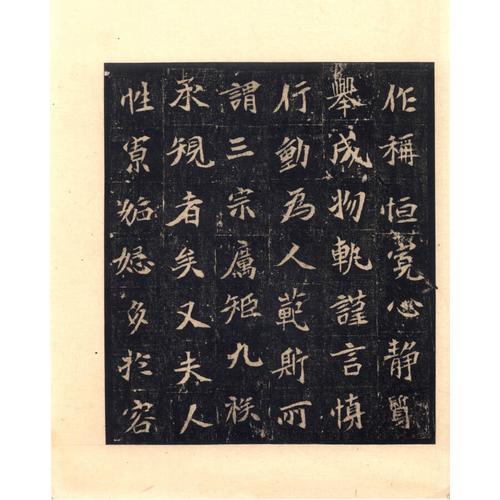 作稱恒寬心靜質
舉成物軌謹言慎
行動為人範斯所
謂三宗厲矩九族
承規者矣又夫人
性寡妬忌多於容